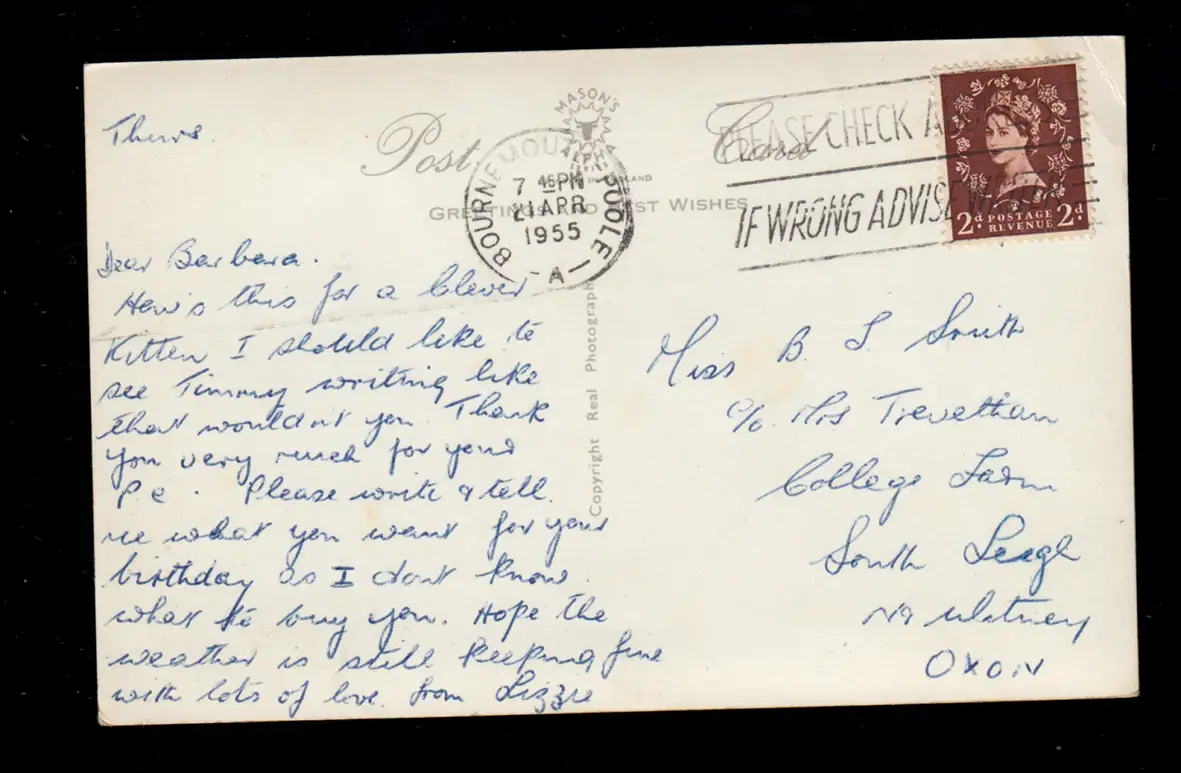 Thurs.
Post Card
MASON'S
ALPHA
GREETINGS AND BEST WISHES
BOURNEMOUTH POOLE
7 45 PM
21 APR
1955
A
PLEASE CHECK
IF WRONG ADVISE
2d POSTAGE 2d
REVENUE
Dear Barbara.
How's this for a Clever
Kitten I should like to
see Timmy writing like
that wouldn't you. Thank
you very much for your
P.c. Please write & tell
me what you want for your
birthday as I dont know
what to buy you. Hope the
weather is still keeping fine
with lots of love from Lizzie
Copyright Real Photograph
Miss B. J. Smith
c/o. Mrs Trevethan
College Farm
South Leigh
Nr Witney
OXON